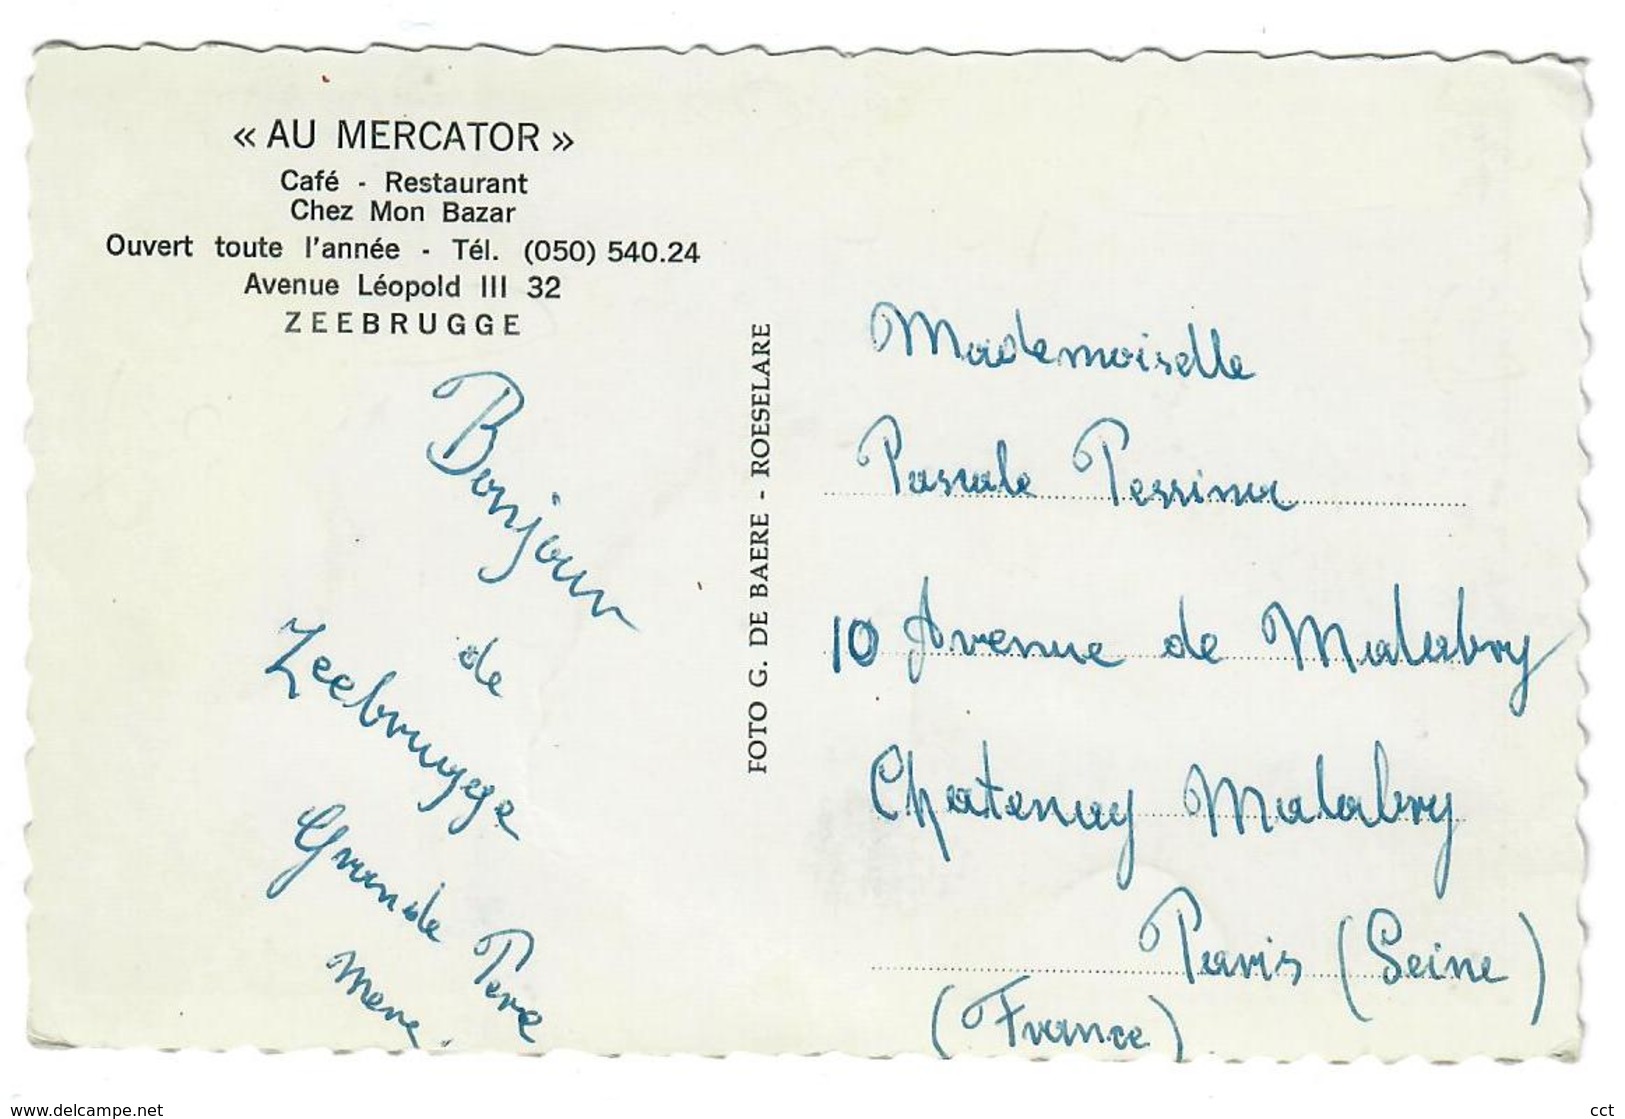 « AU MERCATOR »
Café - Restaurant
Chez Mon Bazar
Ouvert toute l'année - Tél. (050) 540.24
Avenue Léopold III 32
ZEEBRUGGE
Bonjour
de
Zeebrugge
Grande Pere
mere.
FOTO G. DE BAERE - ROESELARE
Mademoiselle
Pascale
10 Avenue de Malabry
Chatenay Malabry
Paris (Seine)
(France)
www.delcampe.net
cct